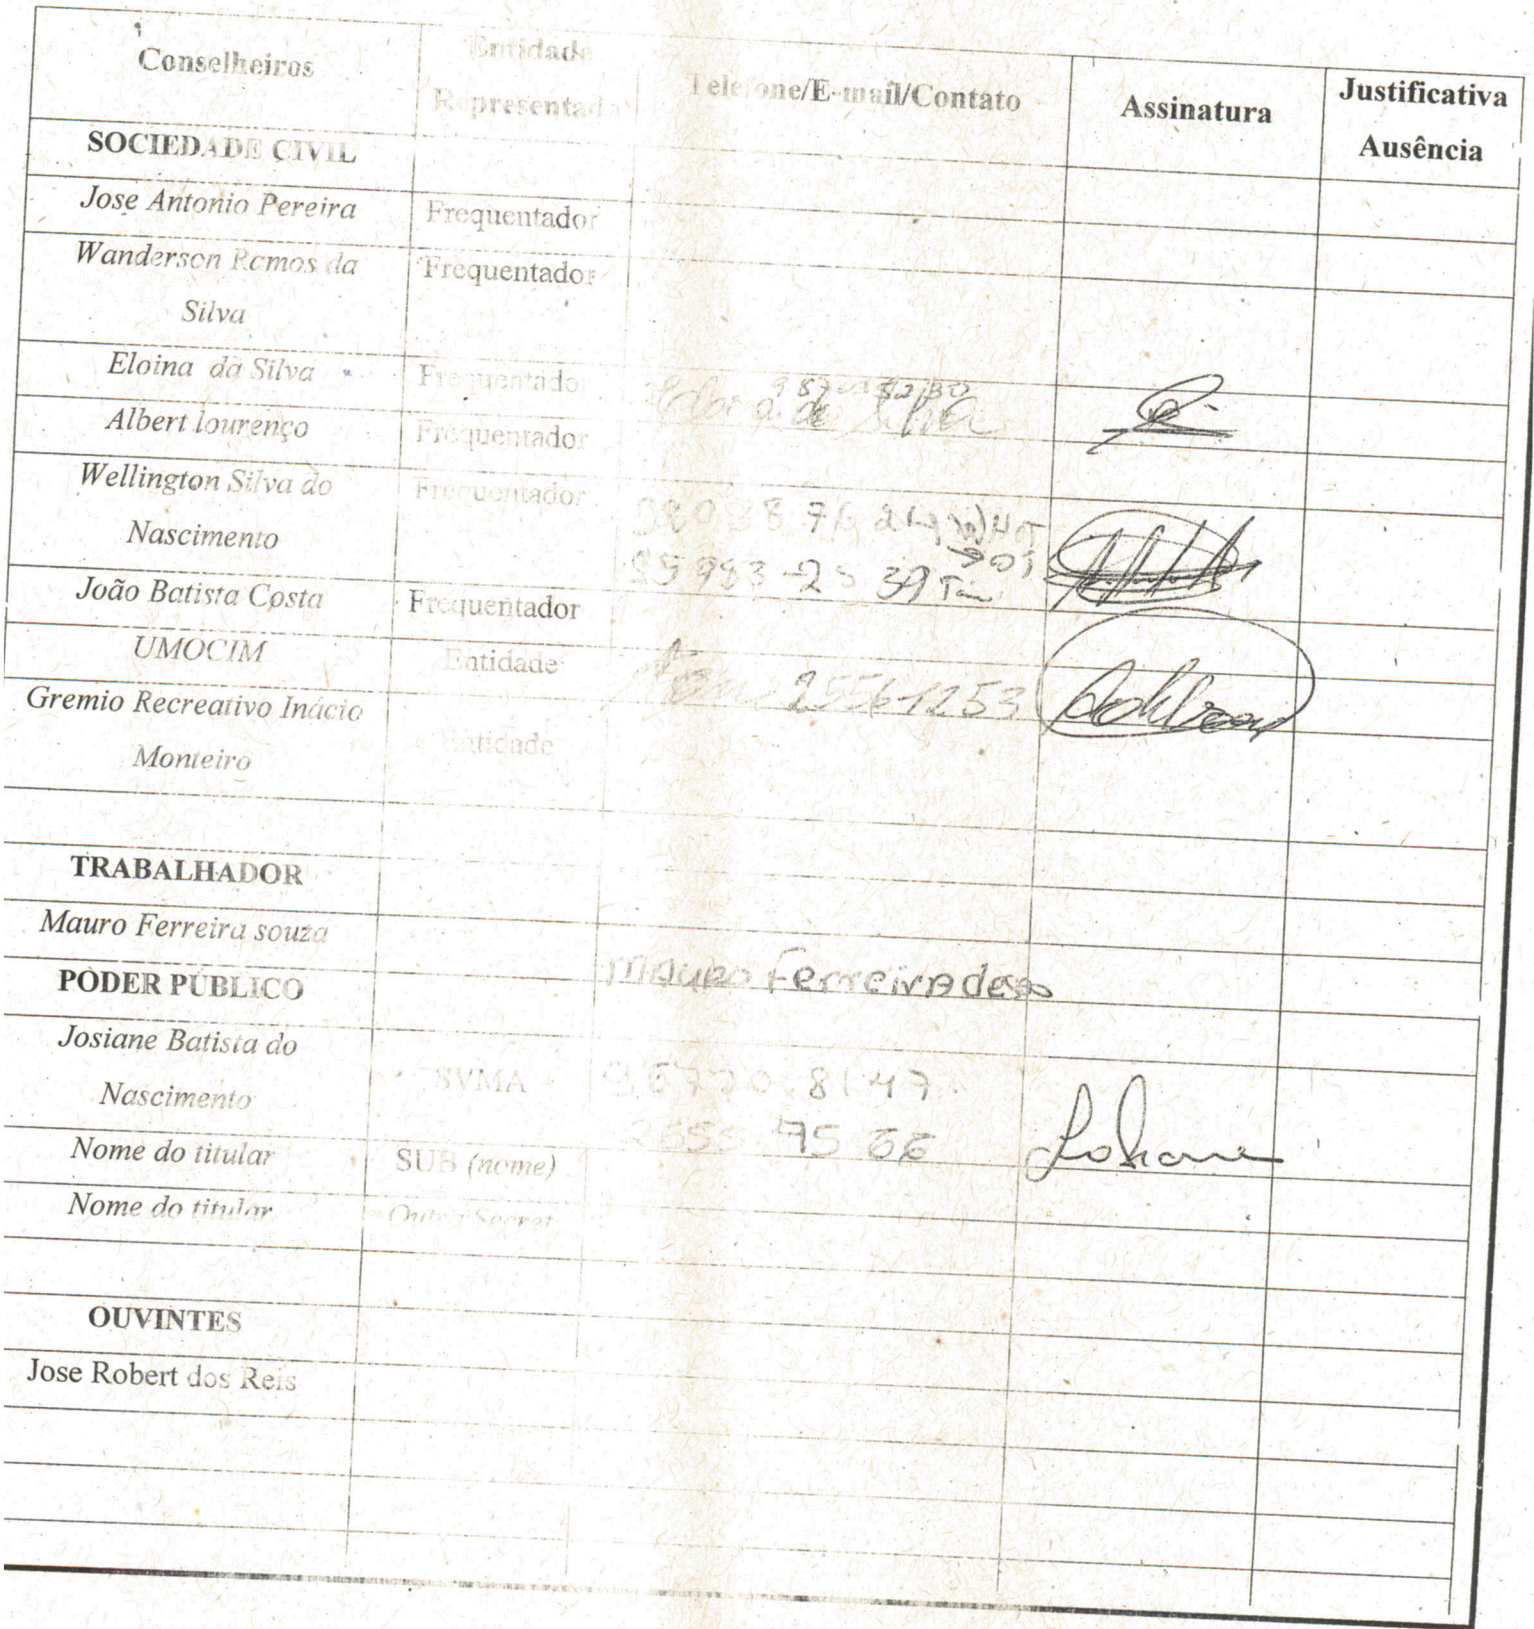 Conselheiros
Entidade
Representada
Telefone/E-mail/Contato
Assinatura
Justificativa
Ausência
SOCIEDADE CIVIL
Jose Antonio Pereira
Frequentador
Wanderson Ramos da
Silva
Frequentador
Eloina da Silva
Frequentador
Albert lourenço
Frequentador
Wellington Silva do
Nascimento
Frequentador
João Batista Costa
Frequentador
UMOCIM
Entidade
2556-1253
Gremio Recreativo Inácio
Monteiro
Entidade
TRABALHADOR
Mauro Ferreira souza
mauro Ferreira de
PODER PÚBLICO
Josiane Batista do
Nascimento
SVMA
8147
75 66
Josiane
Nome do titular
SUB (nome)
Nome do titular
Outra Secret
OUVINTES
Jose Robert dos Reis